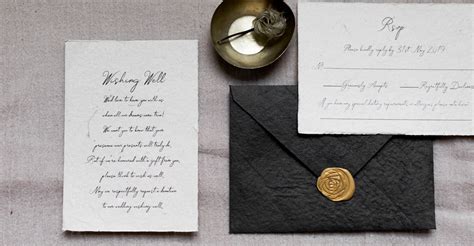 Wishing Well
We'd love to have you with us
when all our dreams come true!
We want you to know that your
presence our presents will truly be.
But if we're honoured with a gift from you,
please think to wish us well.
May we respectfully request a donation
to our wedding wishing well.
Rsvp
Please kindly reply by 31st May 2019
Graciously Accepts Respectfully Declines
If you have any special dietary requirements